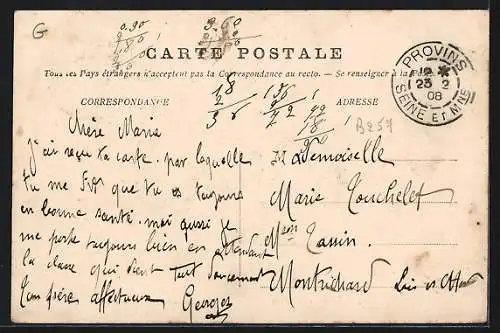 G
0.90
3.60
CARTE POSTALE
Tous les Pays étrangers n'acceptent pas la Correspondance au recto. — Se renseigner à la
CORRESPONDANCE
ADRESSE
PROVINS
23 2
08
SEINE ET MNE
18
2
36
B257
Chère Marie
j'ai reçu ta carte, par laquelle
tu me dis que tu es toujours
en bonne santé, moi aussi je
me porte toujours bien en attendant
la classe qui vient tout doucement
Ton frère affectueux Georges
Demoiselle
Marie Touchelet
Mson Tassin
Montrichard Loir et Cher